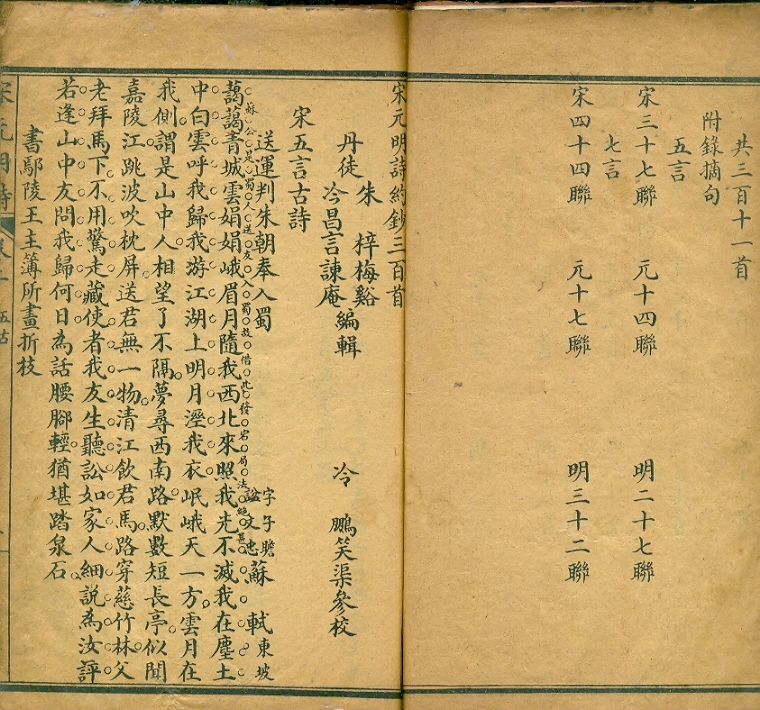 共三百十一首
附錄摘句
五言
宋三十七聯 元十四聯 明二十七聯
七言
宋四十四聯 元十七聯 明三十二聯
宋元明詩約鈔三百首
朱 梓梅谿
丹徒 冷昌言諫庵 編輯 冷 鵬笑渠參校
宋五言古詩
送運判朱朝奉入蜀 蘇 軾 字子瞻諡文忠 東坡
蘇公是蜀人送友入蜀故借此發宕局法絕甚
藹藹青城雲娟娟峨眉月隨我西北來照我光不滅我在塵土
中白雲呼我歸我游江湖上明月溼我衣岷峨天一方雲月在
我側謂是山中人相望了不隔夢尋西南路默數短長亭似聞
嘉陵江跳波吹枕屏送君無一物清江飲君馬路穿慈竹林父
老拜馬下不用驚走藏使者我友生聽訟如家人細說為汝評
若逢山中友問我歸何日為話腰腳輕猶堪踏泉石
書鄢陵王主簿所畫折枝
宋元明詩 卷一 五古